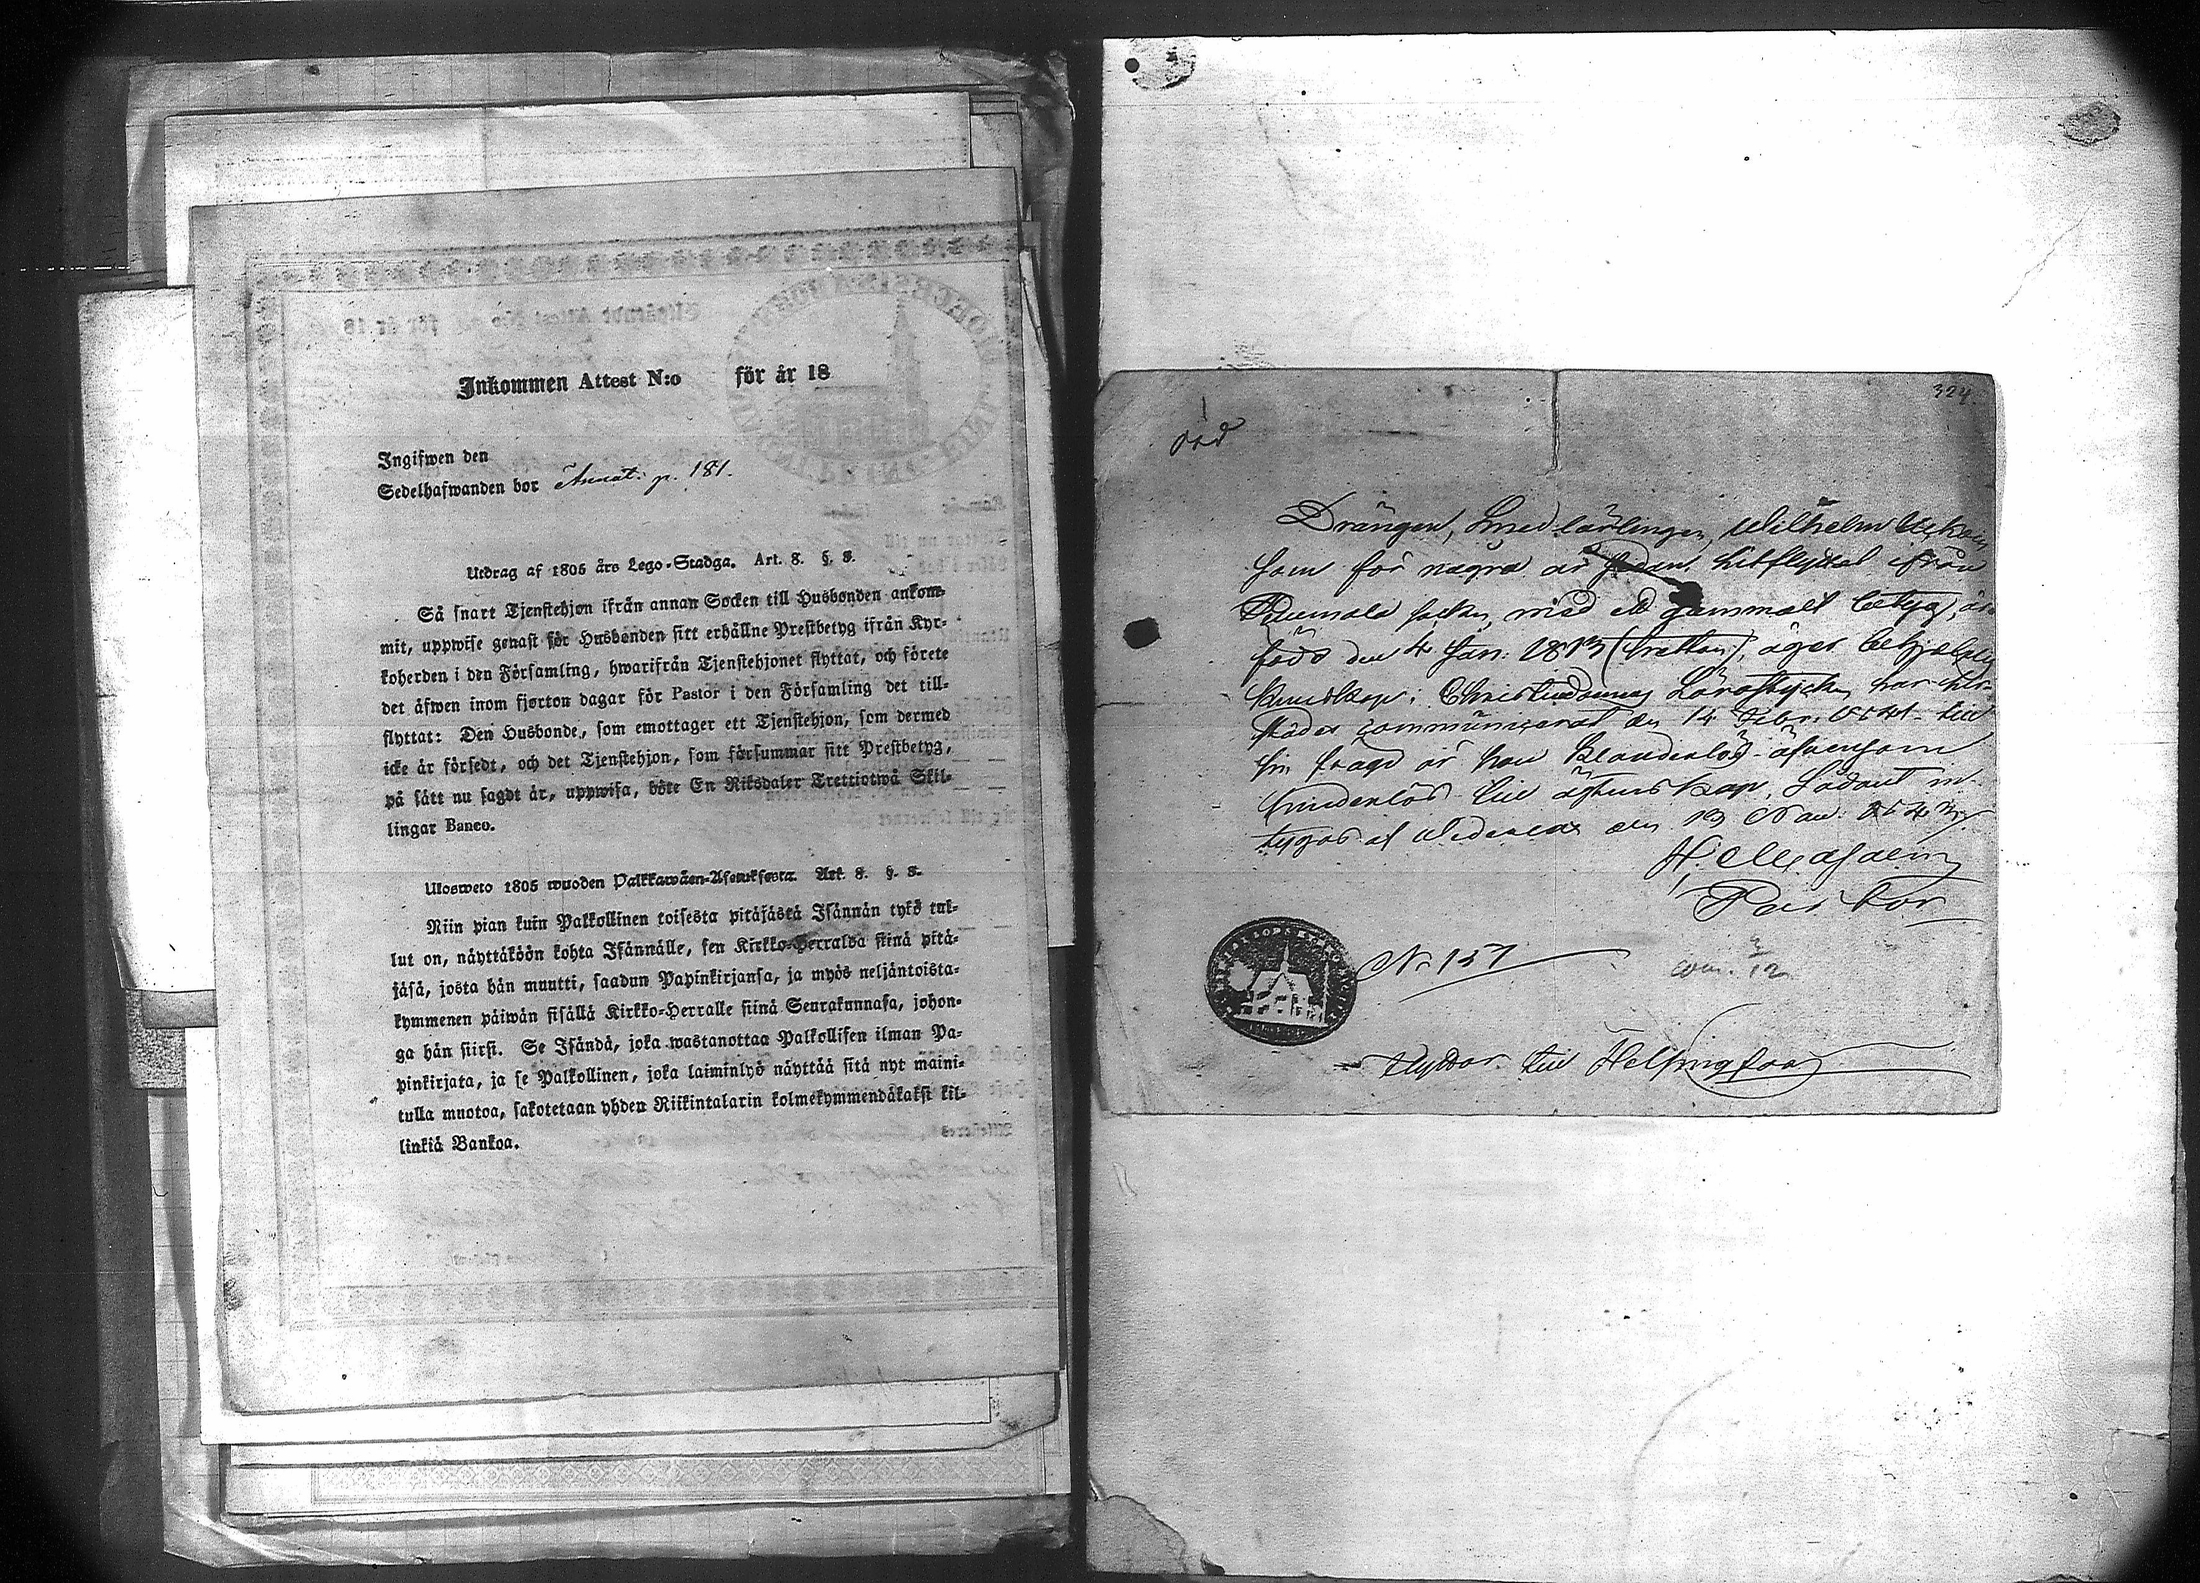 Inkommen Attest N:o för år 18
Ingifwen den
Sedelhafwanden bor Annot: p. 181.
Utdrag af 1805 års Lego-Stadga. Art. 8. §. 8.
Så snart Tjenstehjon ifrån annan Socken till Husbonden ankom-
mit, uppwise genast för Husbonden sitt erhållne Prestbetyg ifrån Kyr-
koherden i den Församling, hwarifrån Tjenstehjonet flyttat, och förete
det äfwen inom fjorton dagar för Pastor i den Församling det till-
flyttat: Den Husbonde, som emottager ett Tjenstehjon, som dermed
icke är försedt, och det Tjenstehjon, som försummar sitt Prestbetyg,
på sätt nu sagdt är, uppwisa, böte En Riksdaler Trettiotwå Skil-
lingar Banco.
Ulosweto 1805 wuoden Palkkawäen-Asetuksesta. Art. 8. §. 8.
Niin pian kuin Palkollinen toisesta pitäjästä Isännän tykö tul-
lut on, näyttäköön kohta Isännälle, sen Kirkko-Herralda siinä pitä-
jäsä, josta hän muutti, saadun Papinkirjansa, ja myös neljäntoista-
kymmenen päiwän sisällä Kirkko-Herralle siinä Seurakunnasa, johon-
ga hän siirsi. Se Isändä, joka wastanottaa Palkollisen ilman Pa-
pinkirjata, ja se Palkollinen, joka laiminlyö näyttää sitä nyt maini-
tulla muotoa, sakotetaan yhden Riikintalarin kolmekymmendäkaksi kil-
linkiä Bankoa.
324.
Drängen, Smedlärlingen, Wilhelm
som för några år sedan hitflyttat ifrån
socken, med ett gammalt betyg, är
född den 4 Jan: 1813 (tretton), äger
kunskap i Christendomens Lärostycken, har här-
städes communicerat den 14 Febr. till
sin frägd är han klanderlös äfvensom
hinderlös till ägtenskap, Sådant in-
tygas af den 13 Nov: 1843
Pastor
N: 157
com. 3/12
flyttar till Helsingfors